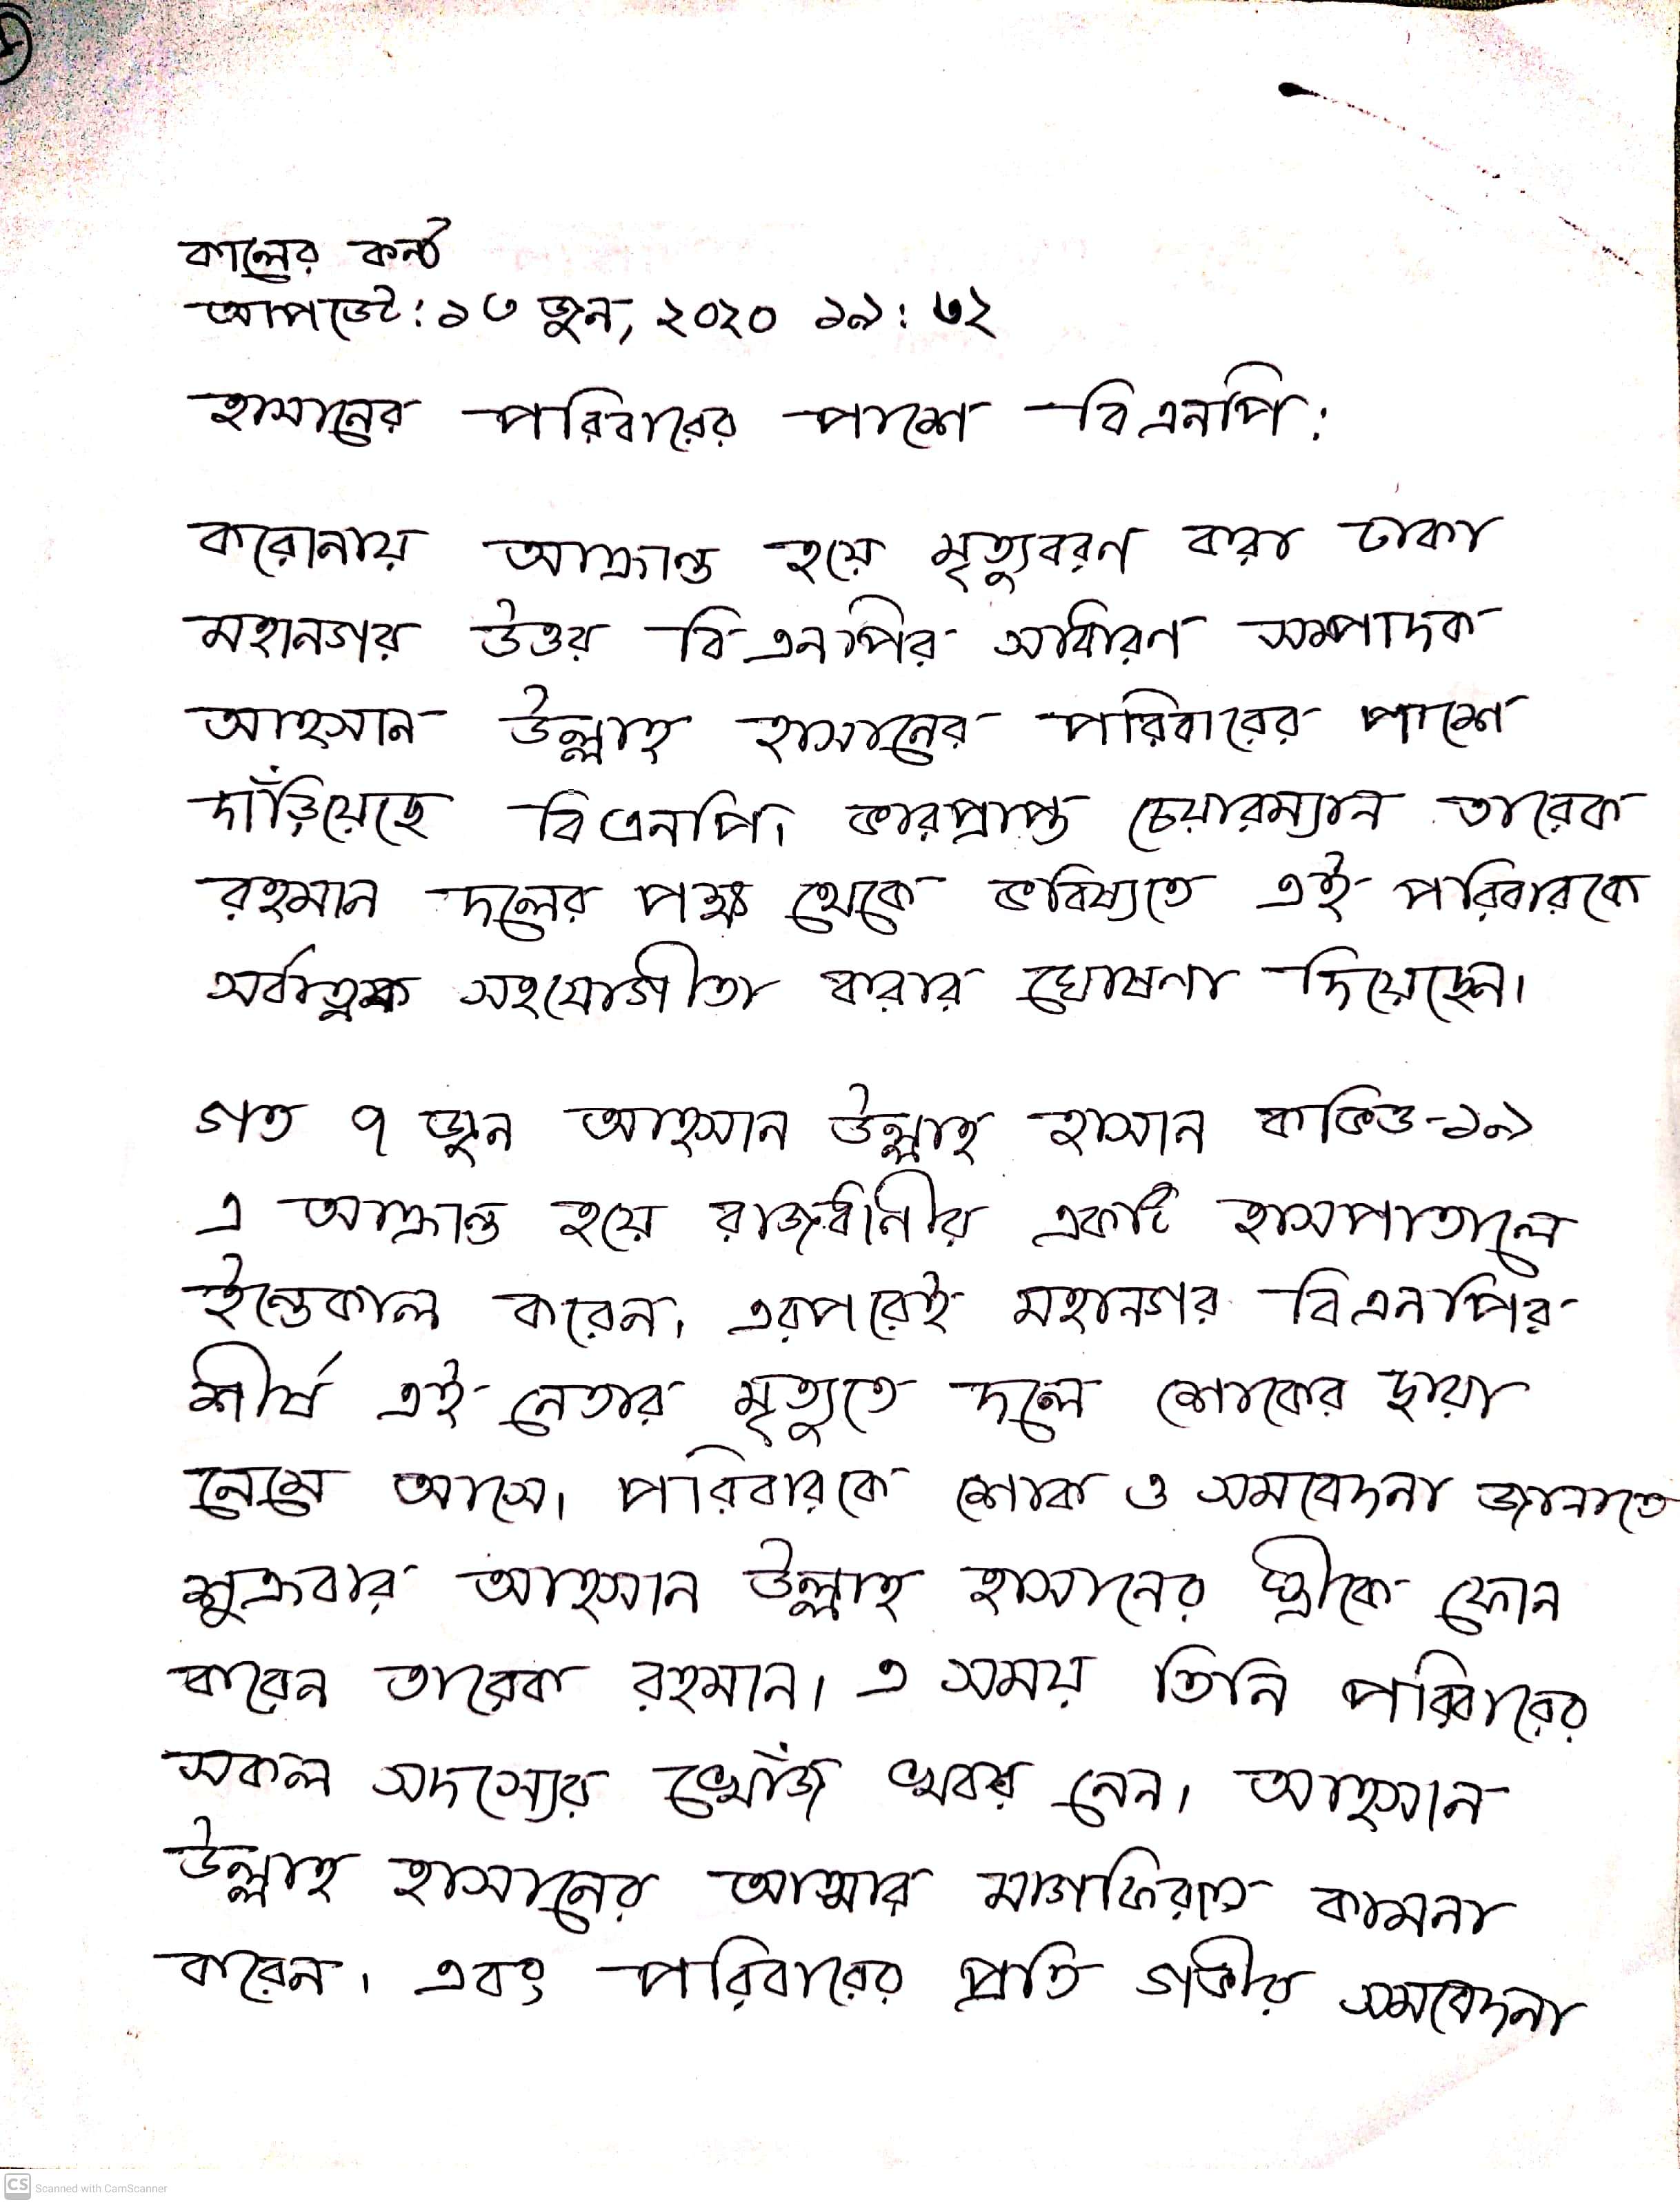 কালের কন্ঠ
আপডেট: ১৩ জুন, ২০২০ ১৯:৩২
হাসানের পরিবারের পাশে বিএনপি:
করোনায় আক্রান্ত হয়ে মৃত্যুবরণ করা ঢাকা
মহানগর উত্তর বিএনপির সাধারণ সম্পাদক
আহসান উল্লাহ হাসানের পরিবারের পাশে
দাঁড়িয়েছে বিএনপি। ভারপ্রাপ্ত চেয়ারম্যান তারেক
রহমান দলের পক্ষ থেকে ভবিষ্যতে এই পরিবারকে
সর্বাত্নক সহযোগীতা করার ঘোষণা দিয়েছেন।
গত ৭ জুন আহসান উল্লাহ হাসান কভিড-১৯
এ আক্রান্ত হয়ে রাজধানীর একটি হাসপাতালে
ইন্তেকাল করেন। এরপরেই মহানগর বিএনপির
শীর্ষ এই নেতার মৃত্যুতে দলে শোকের ছায়া
নেমে আসে। পরিবারকে শোক ও সমবেদনা জানাতে
শুক্রবার আহসান উল্লাহ হাসানের স্ত্রীকে ফোন
করেন তারেক রহমান। এ সময় তিনি পরিবারের
সকল সদস্যের খোঁজ খবর নেন। আহসান
উল্লাহ হাসানের আত্মার মাগফিরাত কামনা
করেন। এবং পরিবারের প্রতি গভীর সমবেদনা
CS Scanned with CamScanner